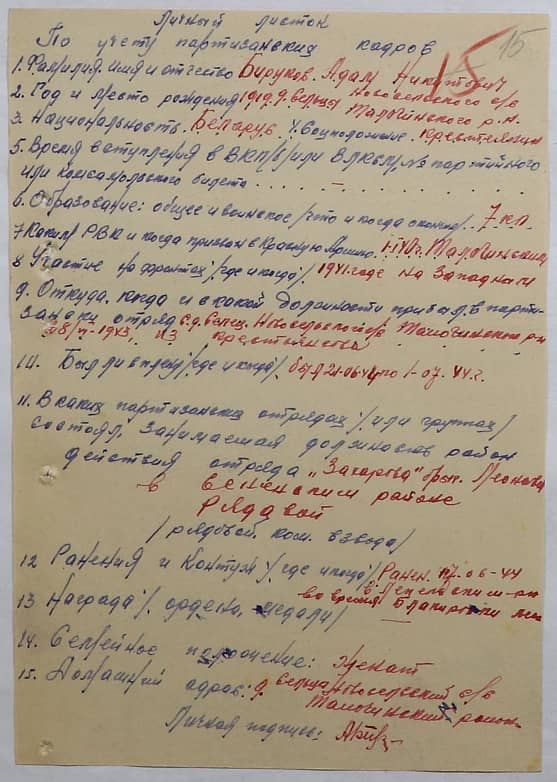 Личный листок
15 15
По учету партизанских кадров
1. Фамилия имя и отчество Бируков. Адам Никитович
2. Год и место рождения 1919. д. Вельцы Новосельского с/с Талочинского р.н.
3. Национальность. Беларус. 4. Соцположение. Крестьянин
5. Время вступления в ВКП/б/или ВЛКСМ, № партийного
или комсомольского билета . . . . — . . . . .
6. Образование: общее и воинское /что и когда окончил/.. 7 кл.
7. Каким РВК и когда призван в Красную Армию. Талочинским
8. Участие на фронтах /где и когда/ 1941 годе на Западном
9. Откуда, когда и в какой должности прибыл в парти-
занский отряд с д. Новосельского с/с Талочинского р-н
1943, из крестьянства
10. Был ли в плену /где и когда/. был 21-06-44 по 1-07.44 г.
11. В каких партизанских отрядах /или группах/
состоял, занимаемая должность район
действия отряда „Захарова" бриг. Леонова
в Сененским районе
рядавой
/рядовой. ком. взвода/
12 Ранения и контузи /где и когда/ Ранен. 17-06-44
в Лепельским р-не
во время Блакировки
13 Награда /. ордена, медали/ —
14. Семейное положение: женат
15. Домашний адрес: д. Вельцы Новосельский с/с
Талочинский район
Личная подпись: